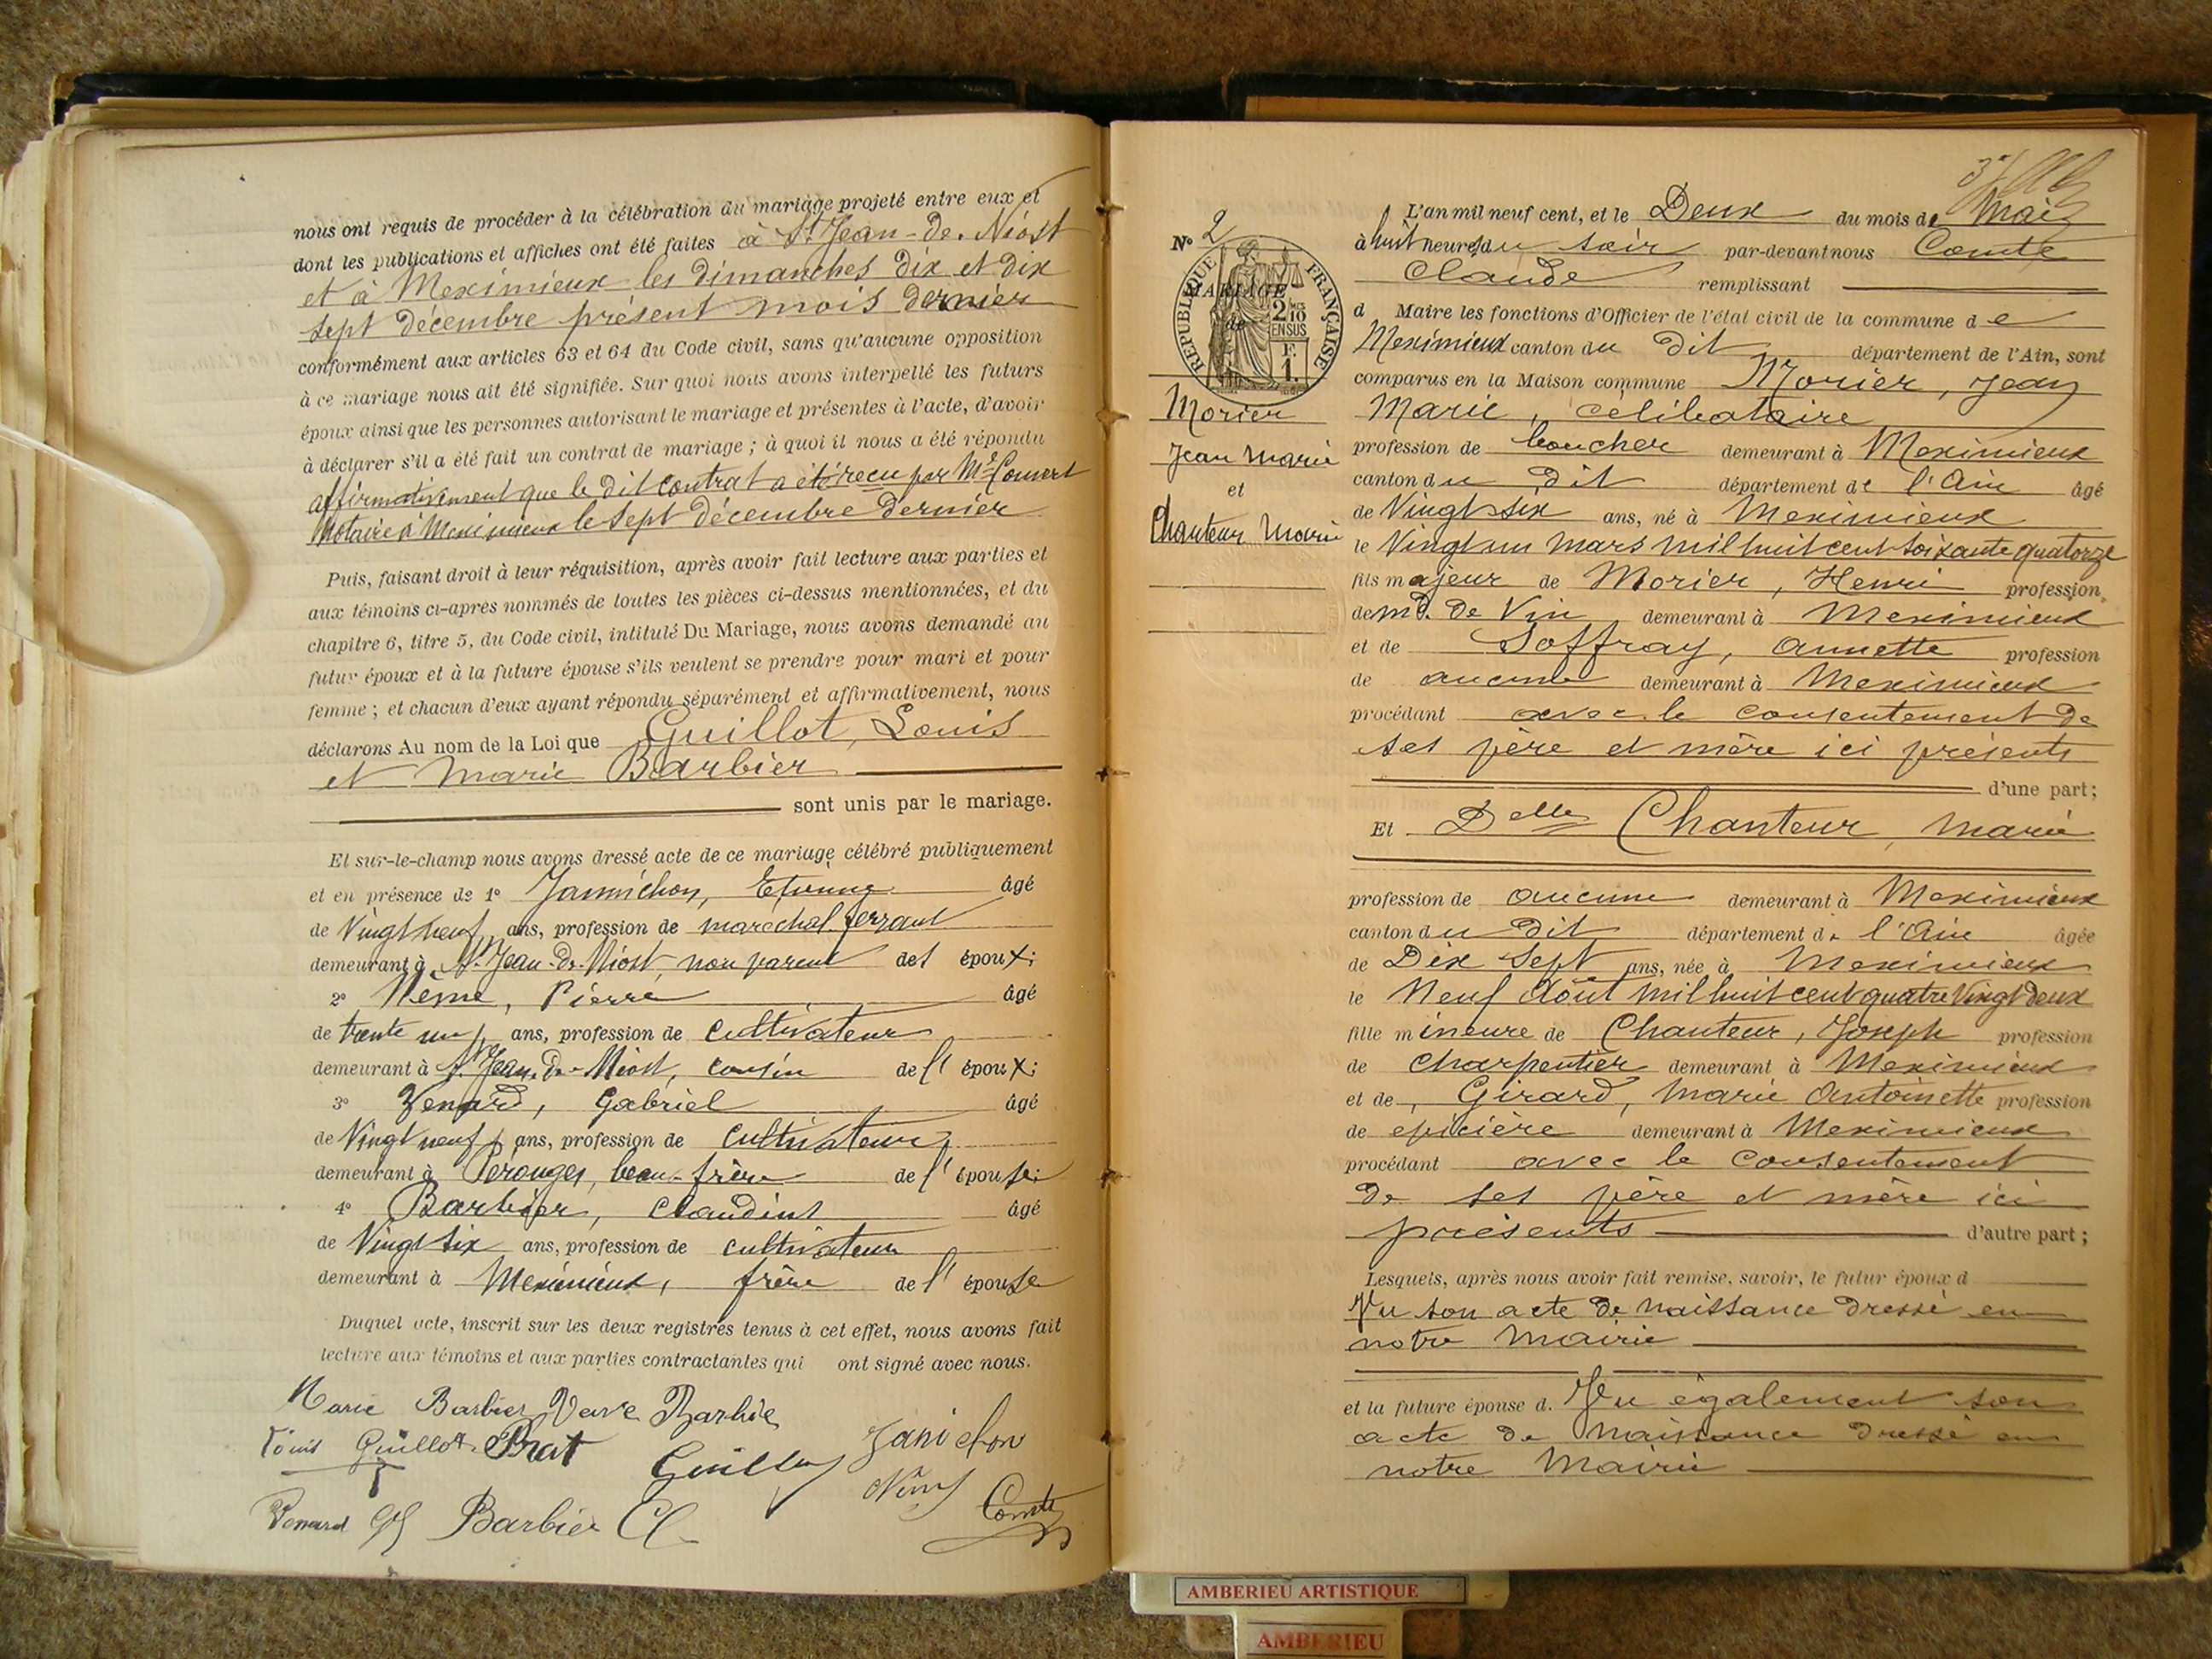 nous ont requis de procéder à la célébration du mariage projeté entre eux et
dont les publications et affiches ont été faites à St Jean-de-Niost
et à Meximieux les dimanches dix et dix
sept décembre présent mois dernier
conformément aux articles 63 et 64 du Code civil, sans qu'aucune opposition
à ce mariage nous ait été signifiée. Sur quoi nous avons interpellé les futurs
époux ainsi que les personnes autorisant le mariage et présentes à l'acte, d'avoir
à déclarer s'il a été fait un contrat de mariage ; à quoi il nous a été répondu
affirmativement que le dit contrat a été reçu par Me Convert
Notaire à Meximieux le sept décembre dernier
Puis, faisant droit à leur réquisition, après avoir fait lecture aux parties et
aux témoins ci-après nommés de toutes les pièces ci-dessus mentionnées, et du
chapitre 6, titre 5, du Code civil, intitulé Du Mariage, nous avons demandé au
futur époux et à la future épouse s'ils veulent se prendre pour mari et pour
femme ; et chacun d'eux ayant répondu séparément et affirmativement, nous
déclarons Au nom de la Loi que Guillot, Louis
et Marie Barbier
sont unis par le mariage.
Et sur-le-champ nous avons dressé acte de ce mariage célébré publiquement
et en présence de 1° Jannichon, Etienne âgé
de Vingt neuf ans, profession de maréchal ferrant
demeurant à St Jean-de-Niost, non parent des époux;
2° Nême, Pierre âgé
de trente un ans, profession de cultivateur
demeurant à St Jean-de-Niost, cousin de l'époux;
3° Venard, Gabriel âgé
de Vingt neuf ans, profession de cultivateur
demeurant à Pérouges, beau-frère de l'épouse;
4° Barbier, Claudius âgé
de Vingt six ans, profession de cultivateur
demeurant à Meximieux, frère de l'épouse
Duquel acte, inscrit sur les deux registres tenus à cet effet, nous avons fait
lecture aux témoins et aux parties contractantes qui ont signé avec nous.
Marie Barbier Veuve Barbier
Louis Guillot Prat Guillot Janichon
Nême Comte
Venard Barbier Cl
N° 2
RÉPUBLIQUE FRANÇAISE
2/10 EN SUS
F. 1.
MARIAGE
de
Morier
Jean Marie
et
Chanteur Marie
L'an mil neuf cent, et le Deux du mois de Mai
à huit heures du soir par-devant nous Comte
Claude remplissant
d Maire les fonctions d'Officier de l'état civil de la commune de
Meximieux canton du dit département de l'Ain, sont
comparus en la Maison commune Morier, Jean
Marie, célibataire
profession de boucher demeurant à Meximieux
canton du dit département de l'Ain âgé
de Vingt six ans, né à Meximieux
le Vingt un mars mil huit cent soixante quatorze
fils majeur de Morier, Henri profession
de md. de Vin demeurant à Meximieux
et de Soffray, Annette profession
de aucune demeurant à Meximieux
procédant avec le consentement de
ses père et mère ici présents
d'une part;
Et Delle Chanteur, Marie
profession de aucune demeurant à Meximieux
canton du dit département de l'Ain âgée
de Dix sept ans, née à Meximieux
le Neuf Août mil huit cent quatre Vingt deux
fille mineure de Chanteur, Joseph profession
de charpentier demeurant à Meximieux
et de, Girard, Marie Antoinette profession
de epicière demeurant à Meximieux
procédant avec le consentement
de ses père et mère ici
présents d'autre part;
Lesquels, après nous avoir fait remise, savoir, le futur époux d
Vu son acte de naissance dressé en
notre Mairie
et la future épouse d. Vu également son
acte de naissance dressé en
notre Mairie
AMBERIEU ARTISTIQUE
AMBERIEU